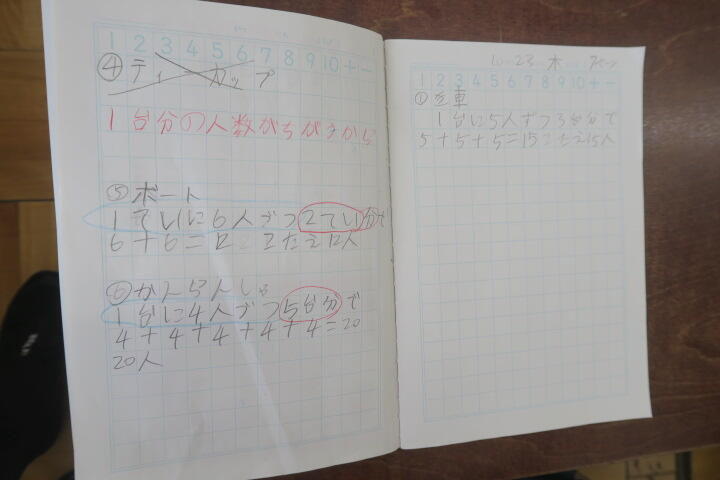 1 2 3 4 5 6 7 8 9 10 + −
④ティーカップ
1台分の人数がちがうから
⑤ボート
1ていに6人ずつ2てい分で
6+6=12 こたえ12人
⑥かんらんしゃ
1台に4人ずつ5台分で
4+4+4+4+4=20
20人
10 23 木
1 2 3 4 5 6 7 8 9 10 + −
1台に5人ずつ3台分で
5+5+5=15こたえ15人